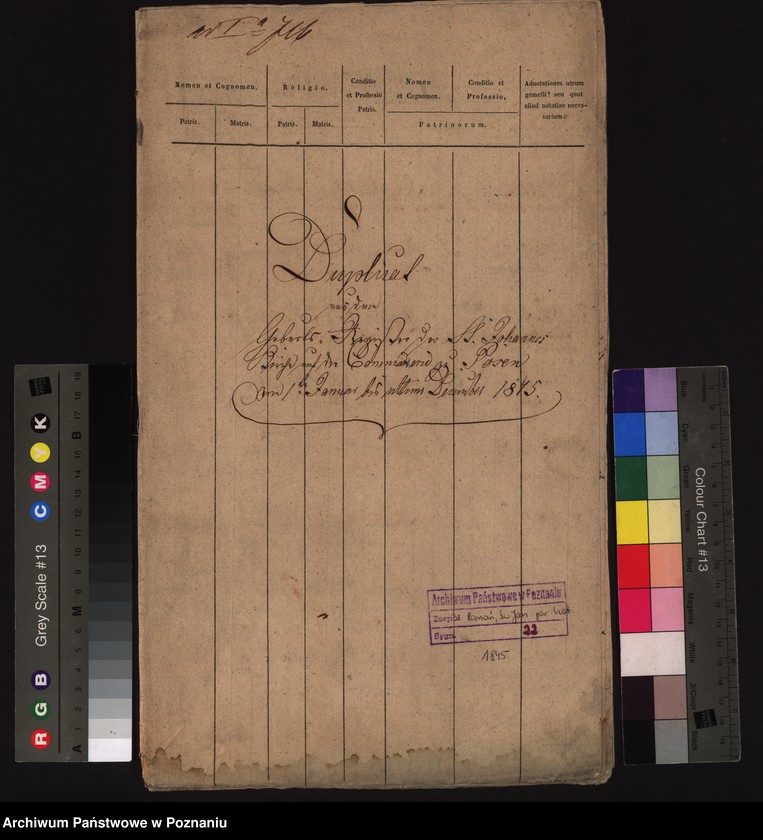 Nomen et Cognomen.
Religio.
Conditio
et Professio
Patris.
Nomen
et Cognomen.
Conditio et
Professio.
Adnotationes utrum
gemelli? seu quot
aliud notatae neces-
sarium?
Patris.
Matris.
Patris.
Matris.
Patrinorum.
Duplicat
aus dem
Geburts-Register der St. Johannes
Kirche auf der Commanderie zu Posen
vom 1ten Januar bis ultimo December 1845.
Archiwum Państwowe w Poznaniu
Zespół Poznań, Św. Jan par. kat.
Sygn. 22
1845
Grey Scale #13
R G B
C M Y K
A 1 2 3 4 5 6 M 8 9 10 11 12 13 14 15 B 17 18 19
Colour Chart #13
Blue
Cyan
Green
Yellow
Red
Magenta
White
3/Color
Black
Archiwum Państwowe w Poznaniu